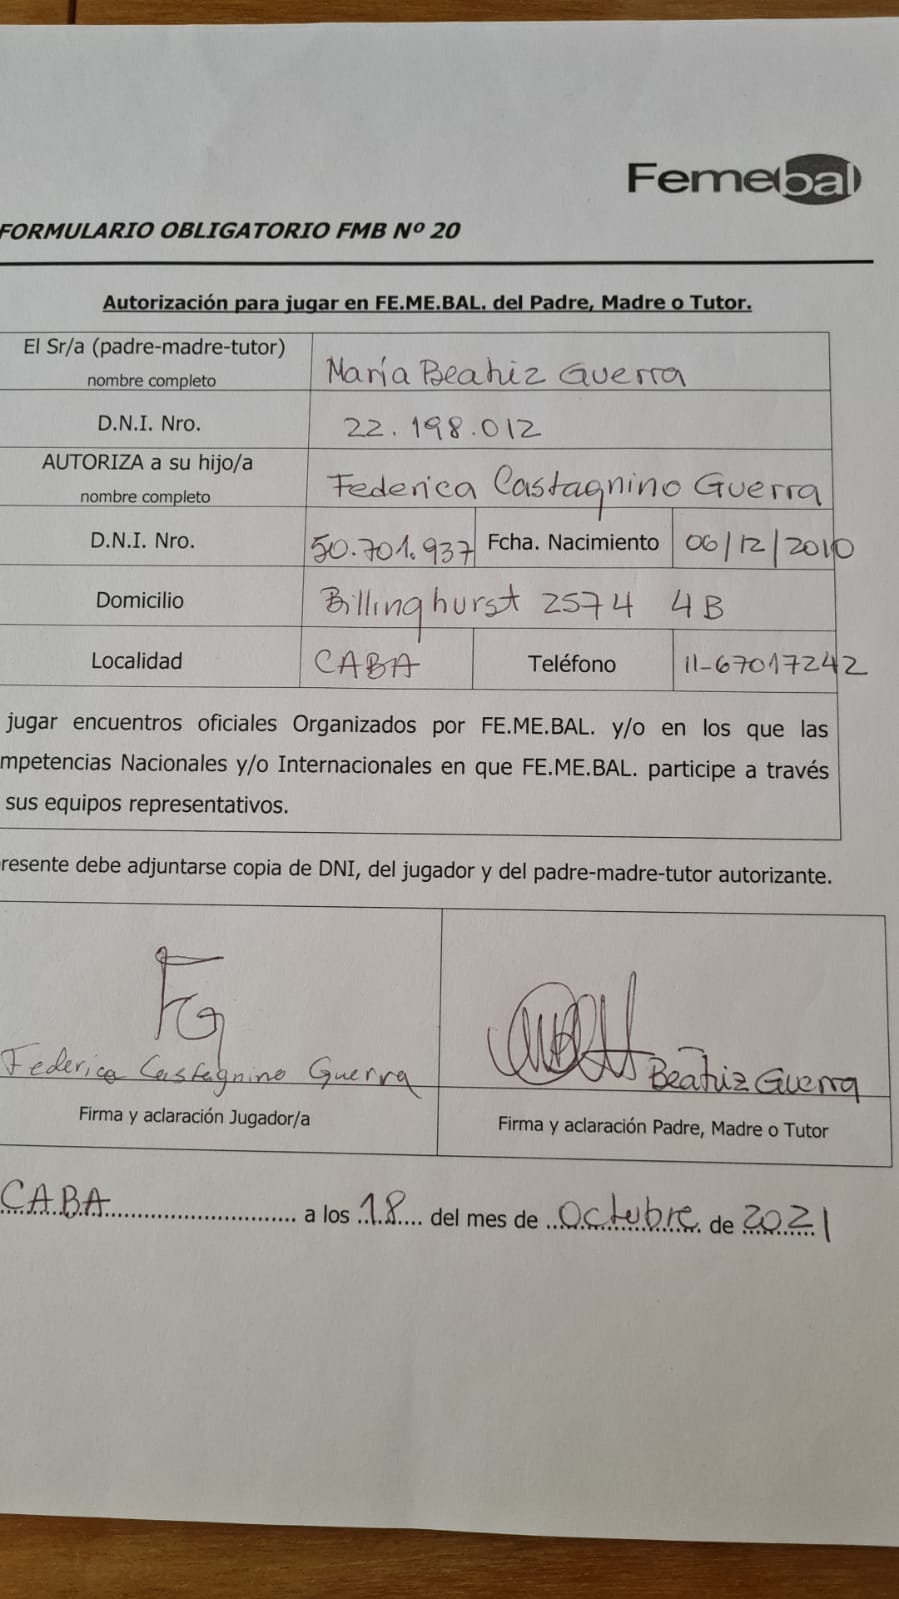 Femebal
FORMULARIO OBLIGATORIO FMB Nº 20
Autorización para jugar en FE.ME.BAL. del Padre, Madre o Tutor.
El Sr/a (padre-madre-tutor)
nombre completo
María Beatriz Guerra
D.N.I. Nro.
22.198.012
AUTORIZA a su hijo/a
nombre completo
Federica Castagnino Guerra
D.N.I. Nro.
50.701.937
Fcha. Nacimiento
06/12/2010
Domicilio
Billinghurst 2574 4B
Localidad
CABA
Teléfono
11-67017242
jugar encuentros oficiales Organizados por FE.ME.BAL. y/o en los que las
mpetencias Nacionales y/o Internacionales en que FE.ME.BAL. participe a través
sus equipos representativos.
resente debe adjuntarse copia de DNI, del jugador y del padre-madre-tutor autorizante.
FG
Federica Castagnino Guerra
Firma y aclaración Jugador/a
Beatriz Guerra
Firma y aclaración Padre, Madre o Tutor
CABA a los 18 del mes de octubre de 2021